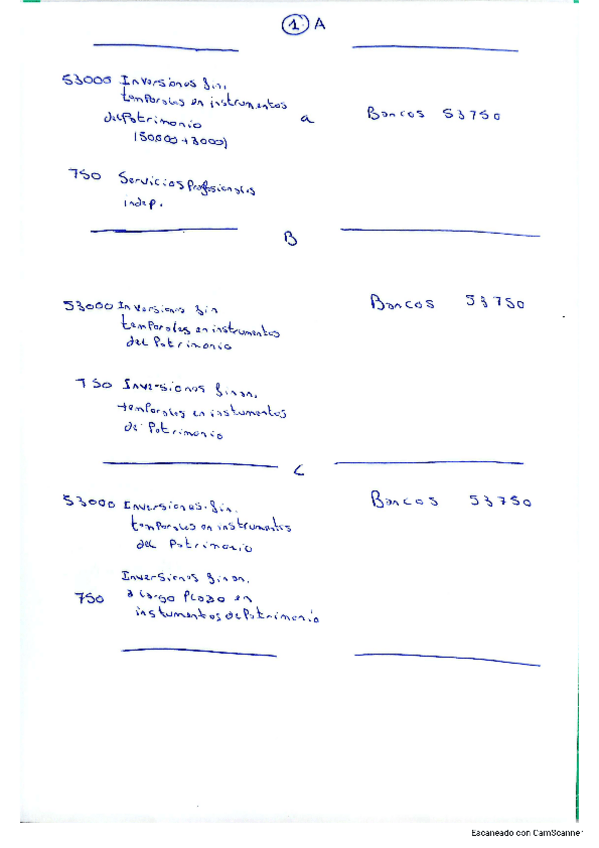 1 A
53000 Inversiones fin.
temporales en instrumentos
del Patrimonio a Bancos 53750
(50.000 + 3000)
750 Servicios Profesionales
indep.
B
53000 Inversiones fin Bancos 53750
temporales en instrumentos
del Patrimonio
750 Inversiones finan.
temporales en instumentos
de Patrimonio
C
53000 Inversiones fin. Bancos 53750
temporales en instrumentos
del Patrimonio
Inversiones finan.
750 a largo Plazo en
instumentos de Patrimonio
Escaneado con CamScanner